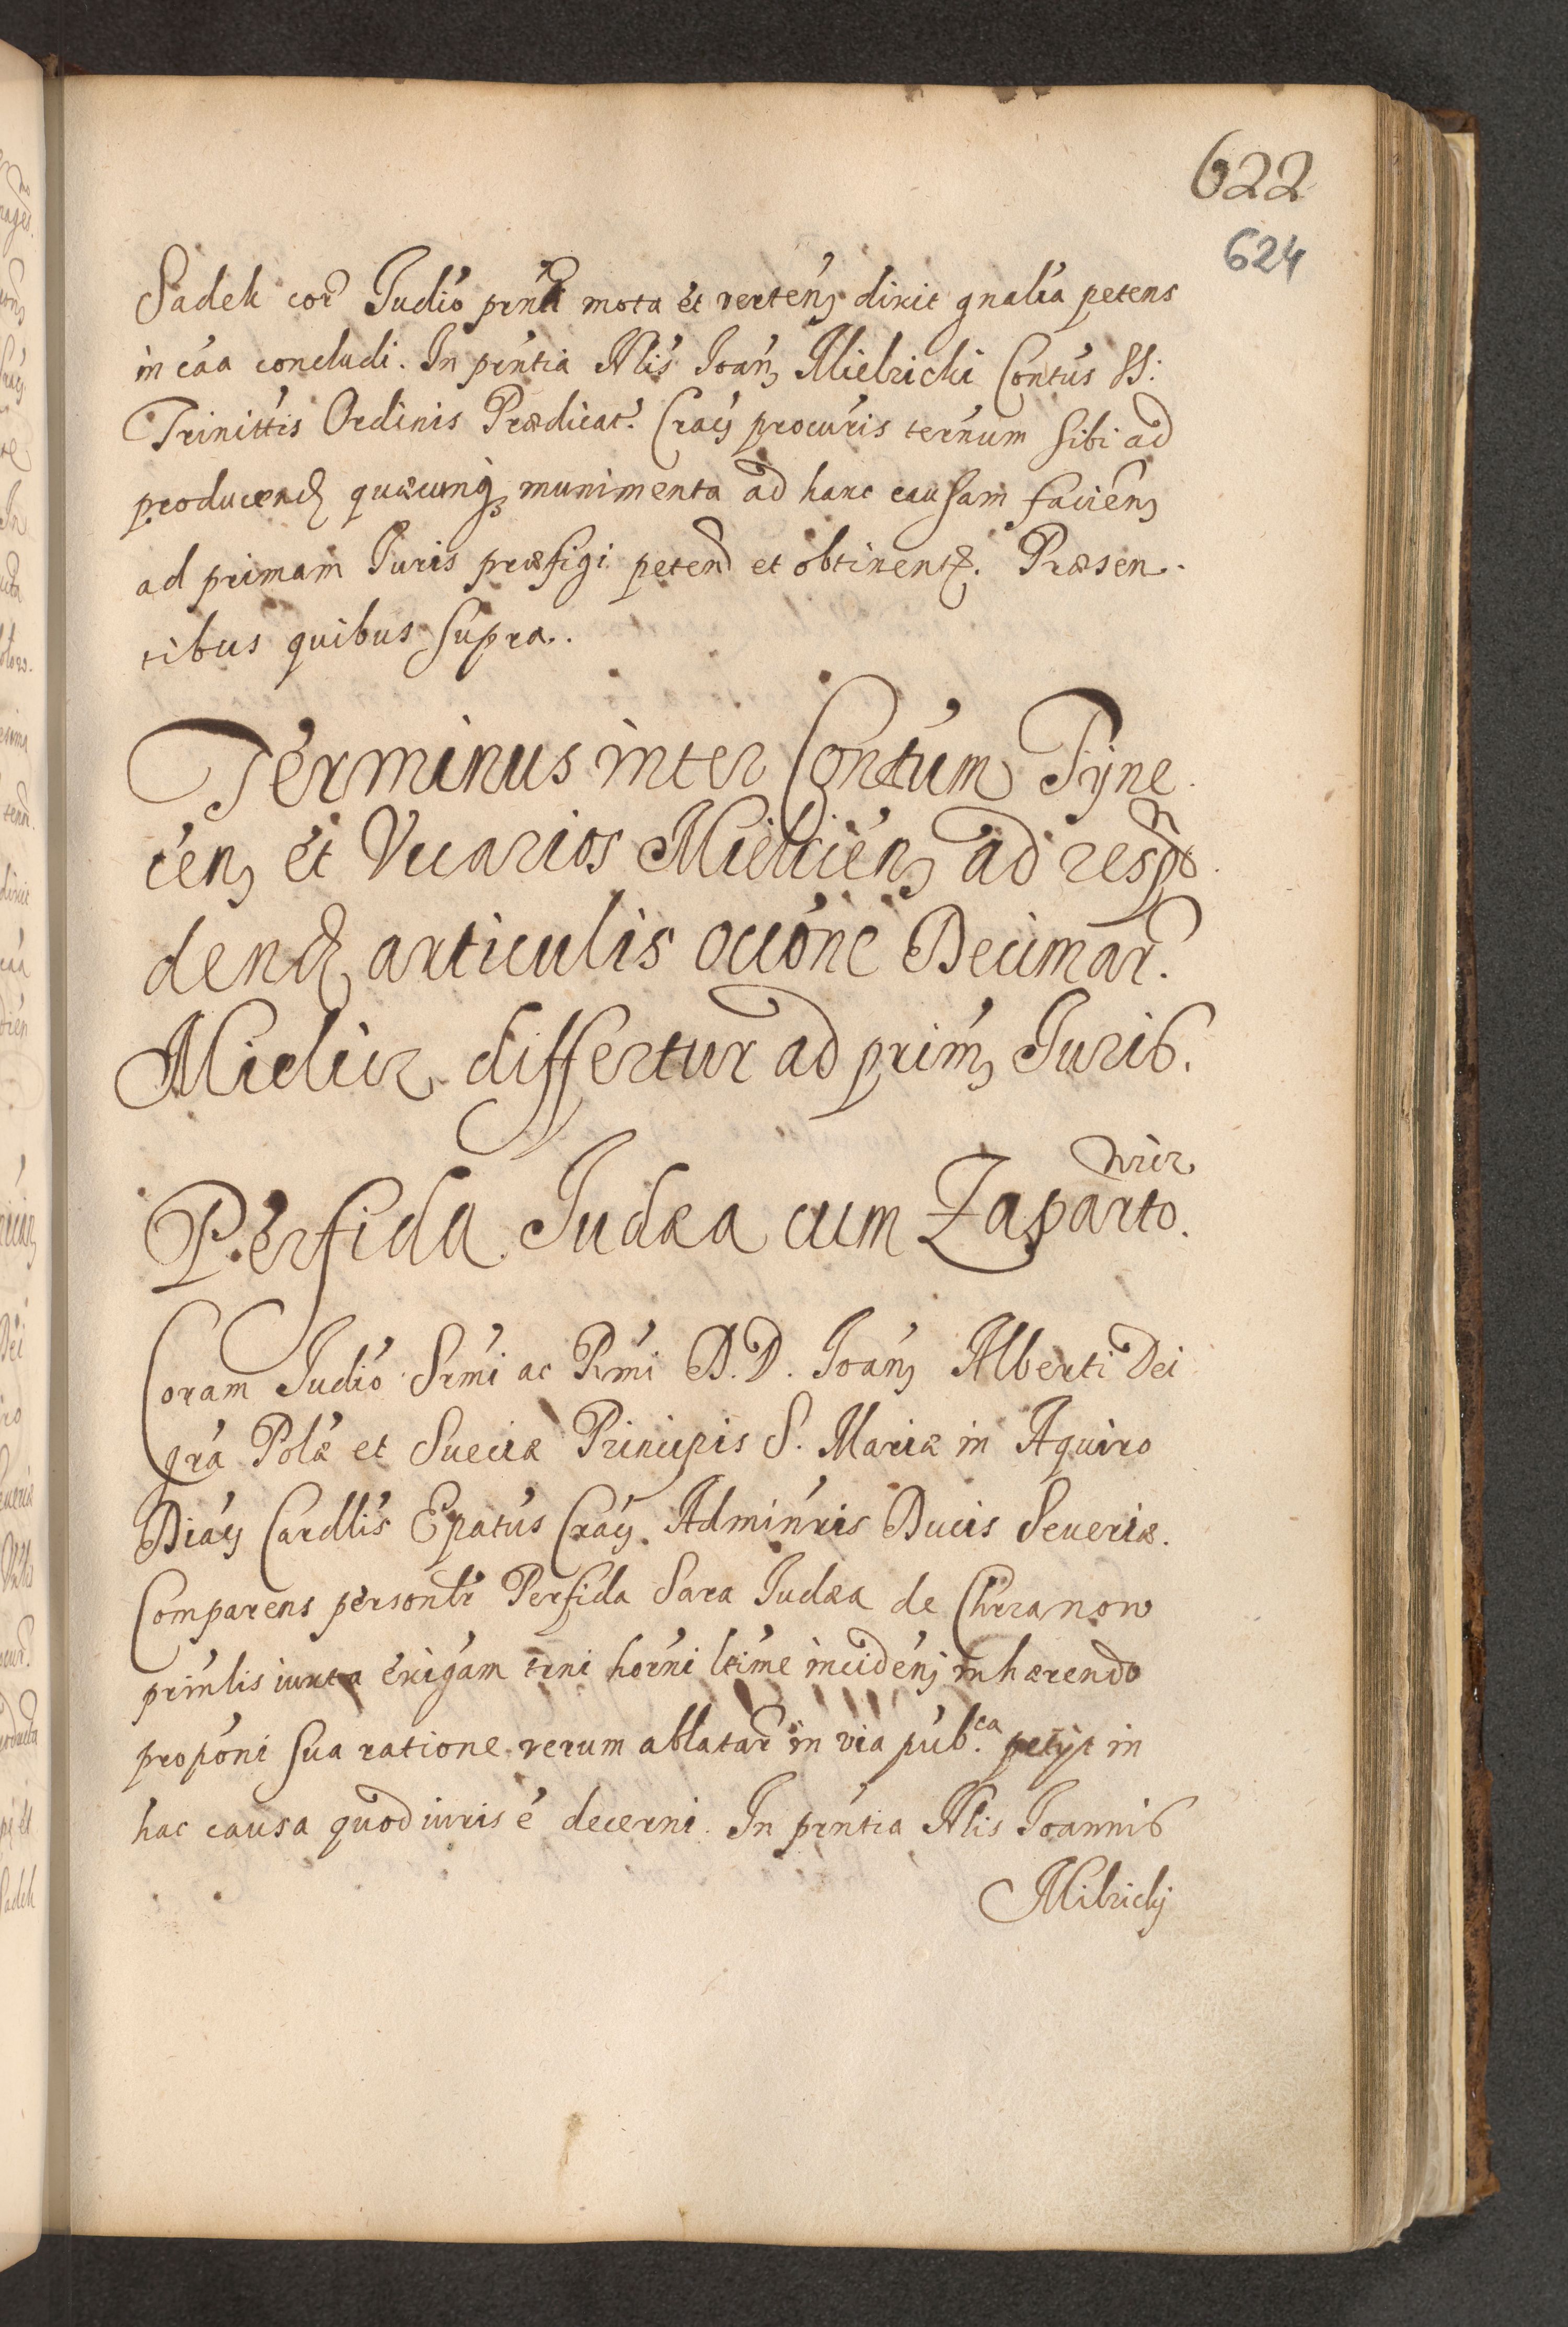 622
624
Sadek cor Judio prnti mota et verten dixit gnalia petens
in caa concludi. In prntia Nlis Joan Mielzicki Contus SS:
Trinittis Ordinis Prædicat. Crac procuris ternum sibi ad
producend quæcunq munimenta ad hanc causam facien
ad primam Juris præfigi petend et obtinent. Præsen-
tibus quibus supra.
Terminus inter Contum Tyne
cen et Vicarios Mielicien ad respo
dend articulis occone Decimar.
Mielicz differtur ad prim Juris.
Perfida Judæa cum Zaparto
wicz
Coram Judio Srmi ac Rmi D.D. Joan Alberti Dei
gra Polæ et Sueciæ Principis S. Mariæ in Aquiro
Diac Cardlis Epatus Crac Adminris Ducis Severiæ.
Comparens personlr Perfida Sara Judæa de Chrzanow
prmlis iuxta exigam trni horni ltime inciden inhærendo
proponi sua ratione rerum ablatar in via pub.ca petijt in
hac causa quod iuris e decerni. In prntia Nlis Joannis
Milzicky